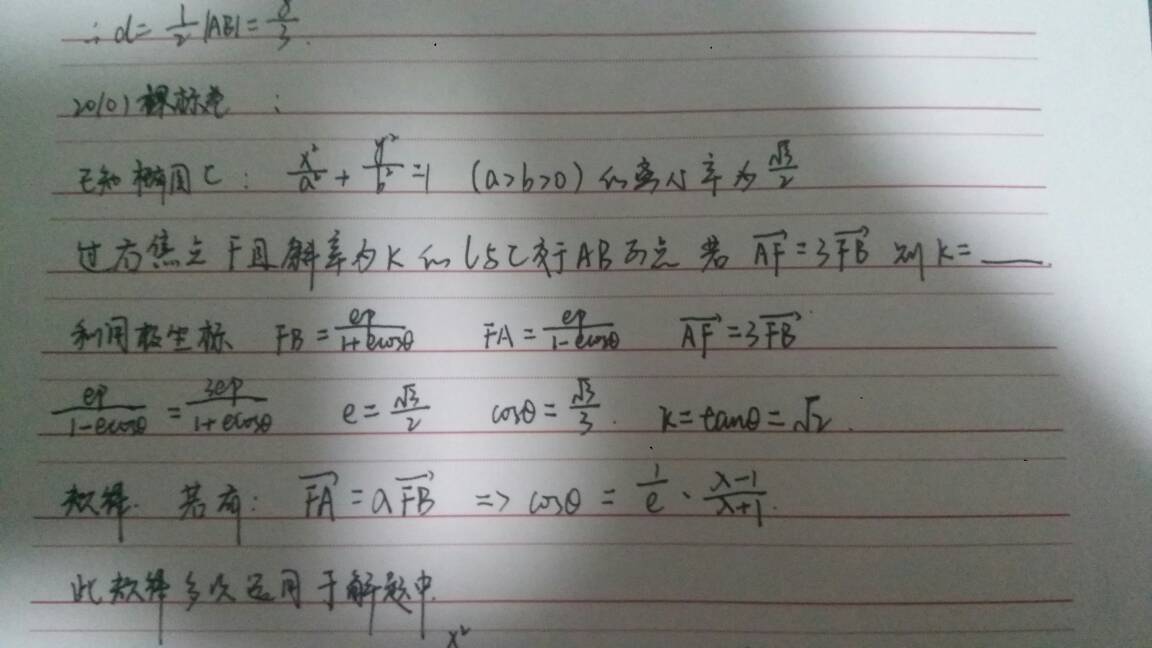 ∴ d = 1/2 |AB| = 8/3.
2010) 课标卷 :
已知椭圆 C : x²/a² + y²/b² = 1 (a>b>0) 的离心率为 √3/2
过右焦点 F 且斜率为 K 的 l 与 C 交于 AB 两点 若 AF→ = 3FB→ 则 k = ___.
利用极坐标 FB = ep/(1+ecosθ) FA = ep/(1-ecosθ) AF→ = 3FB→
ep/(1-ecosθ) = 3ep/(1+ecosθ) e = √3/2 cosθ = √3/3. K = tanθ = √2.
若有: FA→ = λFB→ => cosθ = 1/e · (λ-1)/(λ+1).
此 多次运用于解题中.
x²